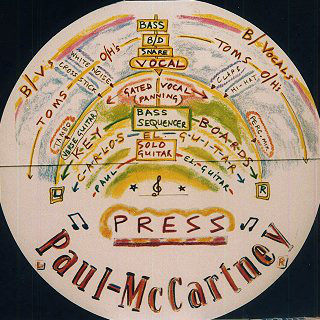 BASS
B/D
SNARE
VOCAL
B/Vs
B/VOCALS
O/Hs
TOMS
WHITE NOISE
CROSS STICK
TOMS
O/Hs
CLAPS
HI-HAT
GATED VOCAL
(PANNING)
BASS
SEQUENCER
KEY BOARDS
CARLOS EL-GUITAR
SOLO
GUITAR
PAUL EL-GUITAR
L
R
PRESS
Paul-McCartney